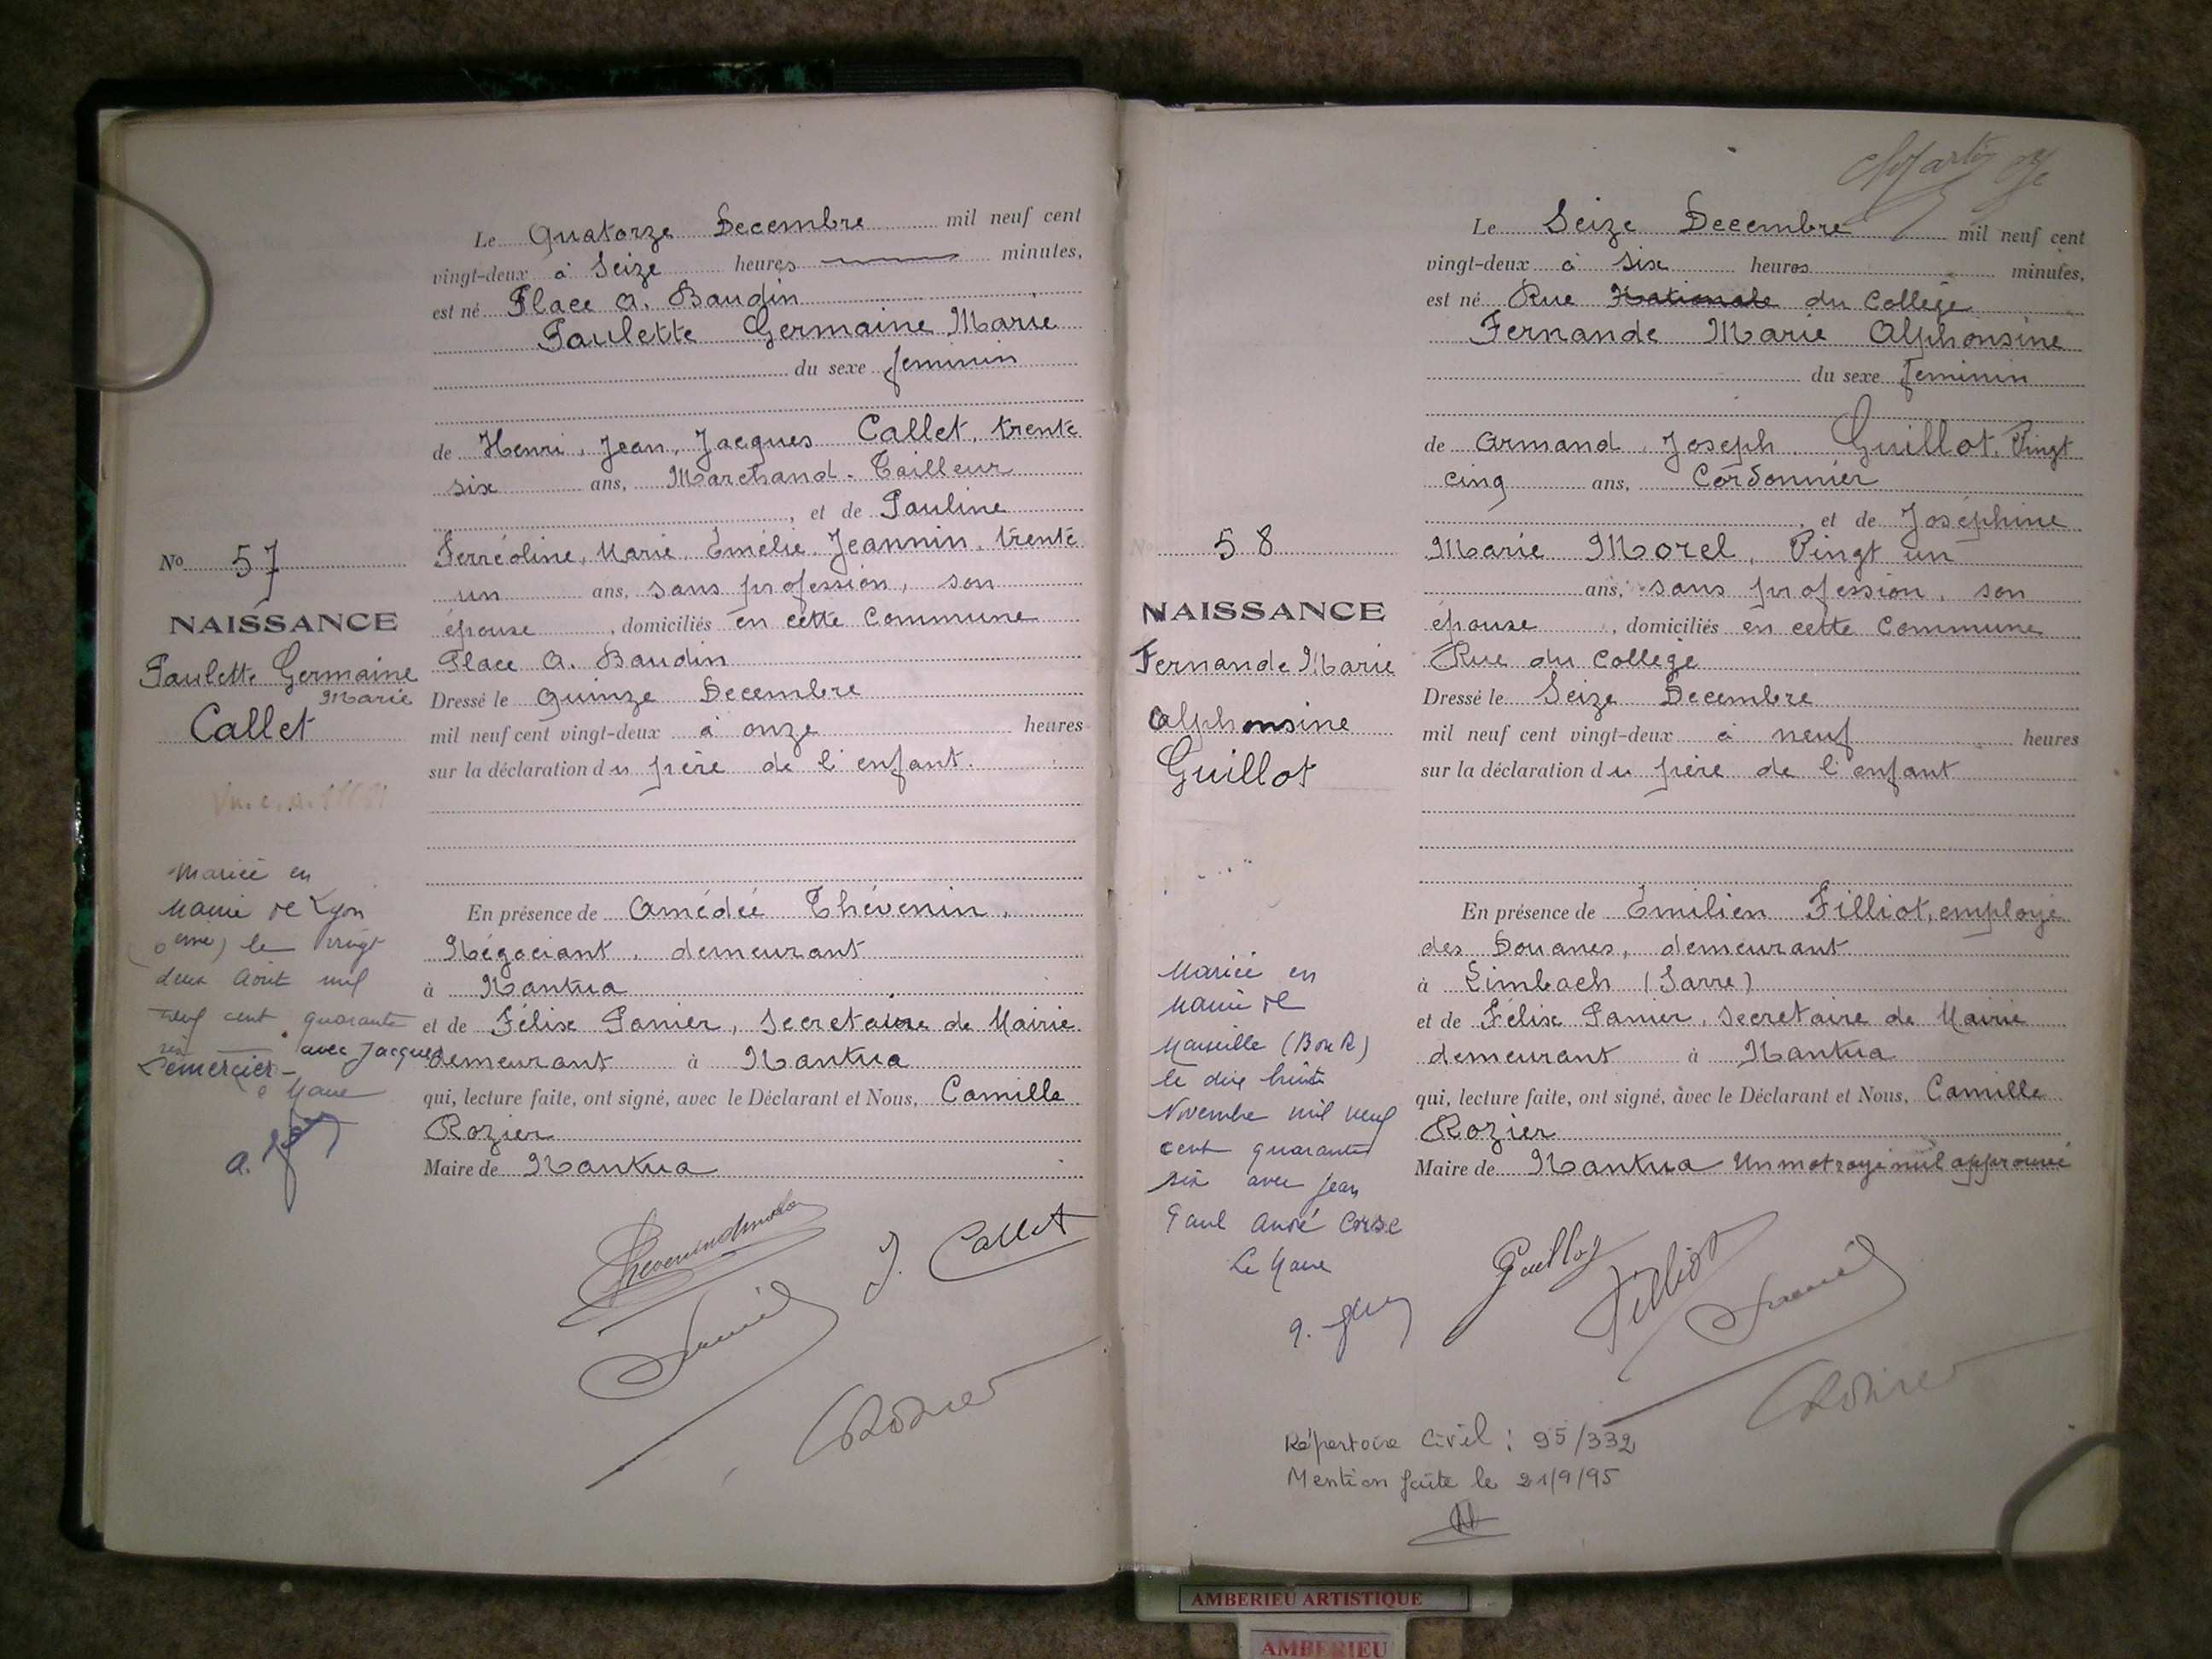 Le Quatorze Decembre mil neuf cent
vingt-deux à Seize heures minutes,
est né Place A. Baudin
Paulette Germaine Marie
du sexe feminin
de Henri, Jean, Jacques Callet, trente
six ans, Marchand-Tailleur
, et de Pauline
Ferréoline, Marie, Emélie Jeannin, trente
un ans, sans profession, son
épouse , domiciliés en cette Commune
Place A. Baudin
Dressé le Quinze Decembre
mil neuf cent vingt-deux à onze heures
sur la déclaration du père de l'enfant.
En présence de Amédée Thévenin,
Négociant, demeurant
à Nantua
et de Félix Panier, Secretaire de Mairie
demeurant à Nantua
qui, lecture faite, ont signé, avec le Déclarant et Nous, Camille
Rozier
Maire de Nantua
J. Callet
No 57
NAISSANCE
Paulette Germaine
Marie
Callet
Mariée en
Mairie de Lyon
eme) le vingt
deux Août mil
neuf cent quarante
avec Jacques
Lemercier
Maire
Le Seize Decembre mil neuf cent
vingt-deux à six heures minutes,
est né Rue Nationale du College
Fernande Marie Alphonsine
du sexe feminin
de Armand, Joseph, Guillot, Vingt
cinq ans, Cordonnier
, et de Joséphine
Marie Morel, Vingt un
ans, sans profession, son
épouse , domiciliés en cette Commune
Rue du College
Dressé le Seize Decembre
mil neuf cent vingt-deux à neuf heures
sur la déclaration du père de l'enfant
En présence de Emilien Filliot, employé
des Douanes, demeurant
à Limbach (Sarre)
et de Félix Panier, Secretaire de Mairie
demeurant à Nantua
qui, lecture faite, ont signé, avec le Déclarant et Nous, Camille
Rozier
Maire de Nantua Un mot rayé nul approuvé
Guillot
Filliot
No 58
NAISSANCE
Fernande Marie
Alphonsine
Guillot
Mariée en
Mairie de
Marseille (B du R)
le dix huit
Novembre mil neuf
cent quarante
six avec Jean
Paul André Corse
Le Maire
Répertoire Civil : 95/332
Mention faite le 21/9/95
AMBERIEU ARTISTIQUE
AMBERIEU